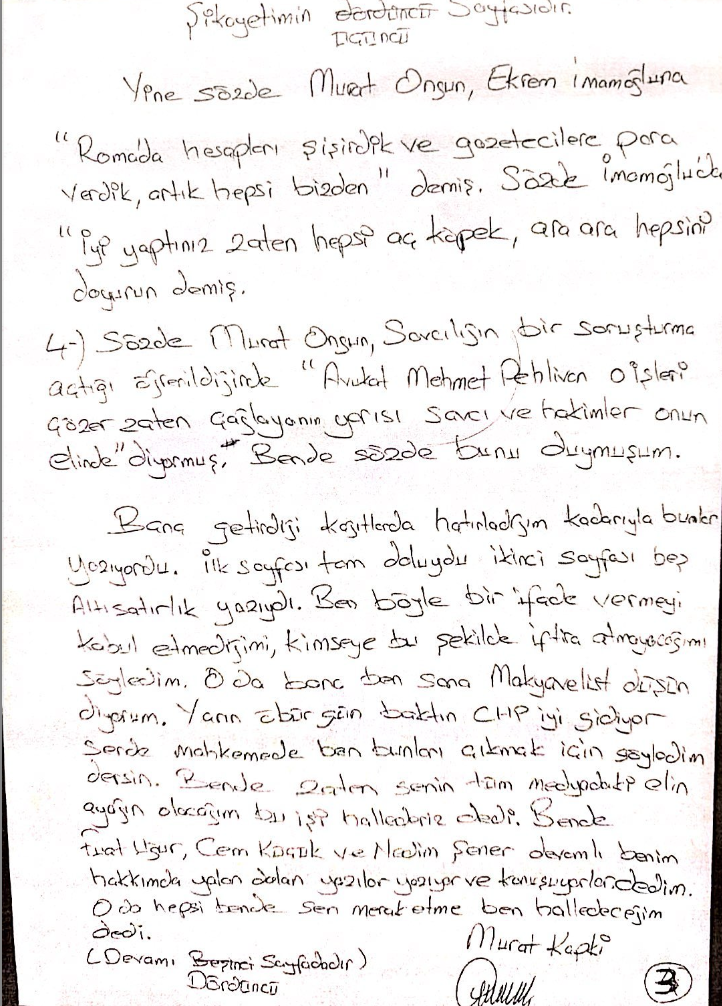 Şikayetimin dördüncü Sayfasıdır.
Üçüncü
Yine sözde Murat Ongun, Ekrem İmamoğluna
"Roma'da hesapları şişirdik ve gazetecilere para
verdik, artık hepsi bizden" demiş. Sözde İmamoğlu'da
"iyi yaptınız zaten hepsi aç köpek, ara ara hepsini
doyurun demiş.
4-) Sözde Murat Ongun, Savcılığın bir soruşturma
açtığı öğrenildiğinde "Avukat Mehmet Pehlivan o işleri
çözer zaten Çağlayanın yarısı savcı ve hakimler onun
elinde" diyormuş. Bende sözde bunu duymuşum.
Bana getirdiği kağıtlarda hatırladığım kadarıyla bunlar
yazıyordu. İlk sayfası tam doluydu ikinci sayfası beş
Altı satırlık yazıydı. Ben böyle bir ifade vermeyi
kabul etmediğimi, kimseye bu şekilde iftira atmayacağımı
söyledim. O da bana ben sana Makyavelist düşün
diyorum. Yarın öbür gün baktın CHP iyi gidiyor
sende mahkemede ben bunları çıkmak için söyledim
dersin. Bende zaten senin tüm medyadaki elin
ayağın olacağım bu işi hallederiz dedi. Bende
Fuat Uğur, Cem Küçük ve Nedim Şener devamlı benim
hakkımda yalan dolan yazılar yazıyor ve konuşuyorlar dedim.
O da hepsi bende sen merak etme ben halledeceğim
dedi.
Murat Kapki
(Devamı Beşinci Sayfadadır)
Dördüncü
3